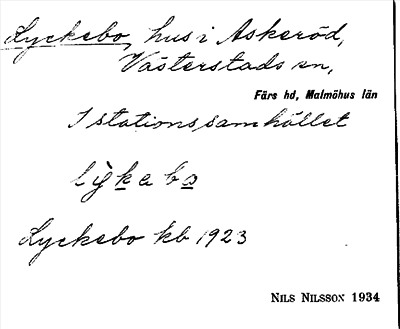 Lyckebo, hus i Askeröd,
Västerstads sn,
Färs hd, Malmöhus län
I stationssamhället
Lyckebo kb 1923
NILS NILSSON 1934